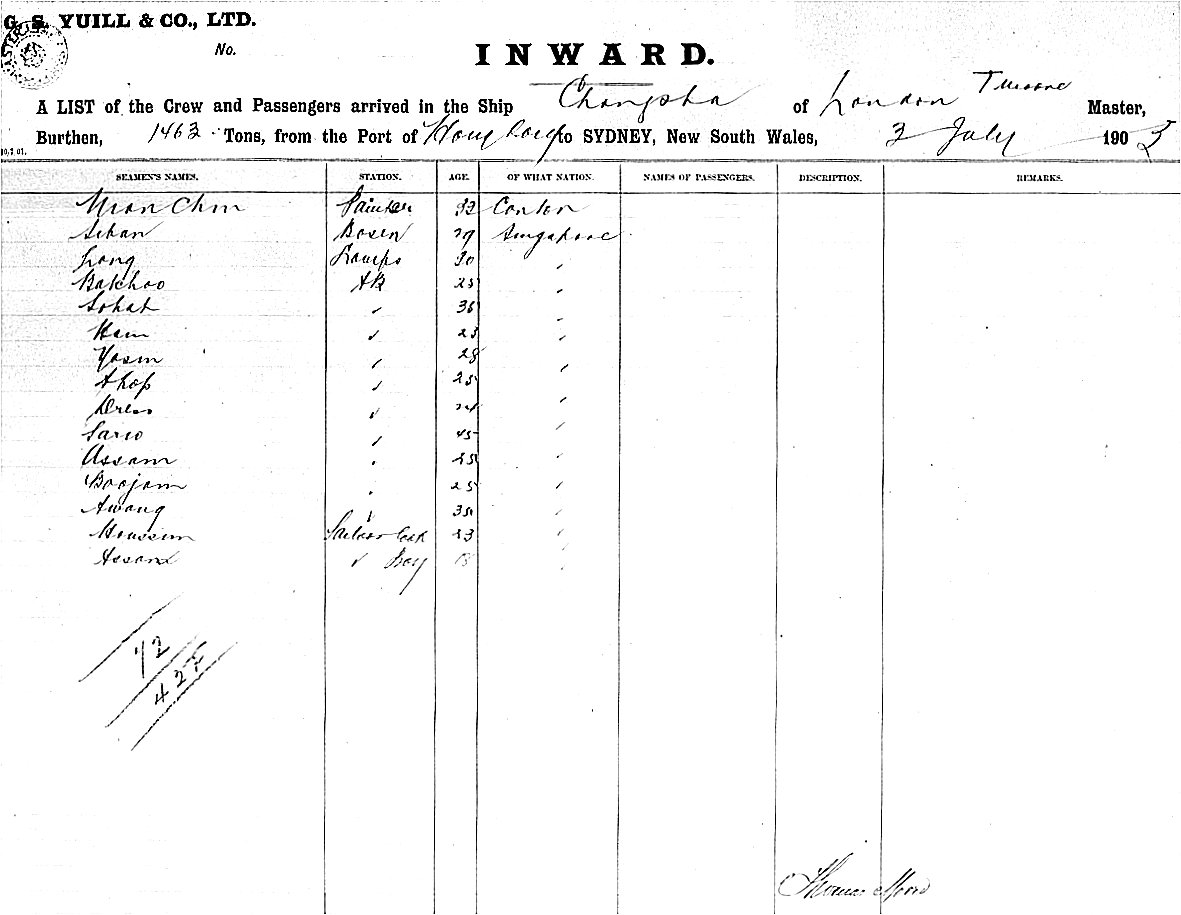 G. S. YUILL & CO., LTD.
No.
INWARD.
A LIST of the Crew and Passengers arrived in the Ship Changsha of London T Moore Master,
Burthen, 1463 Tons, from the Port of Hong Kong to SYDNEY, New South Wales, 3 July 1903
10.7.01.
SEAMEN'S NAMES. STATION. AGE. OF WHAT NATION. NAMES OF PASSENGERS. DESCRIPTION. REMARKS.
Chin Painter 32 Canton
Bosen Singapore
Long Lamps 30 "
Bakchoo AB 25 "
Sohat " 36 "
Ham " 23 "
Yosin " 28 "
Ahop " 25 "
Dress " 24 "
Sario " 45 "
Assam " 25 "
Boojam " 25 "
Awang " "
Moussim Sailors Cook 23 "
Assan " Boy 18 "
12
Thomas Moore